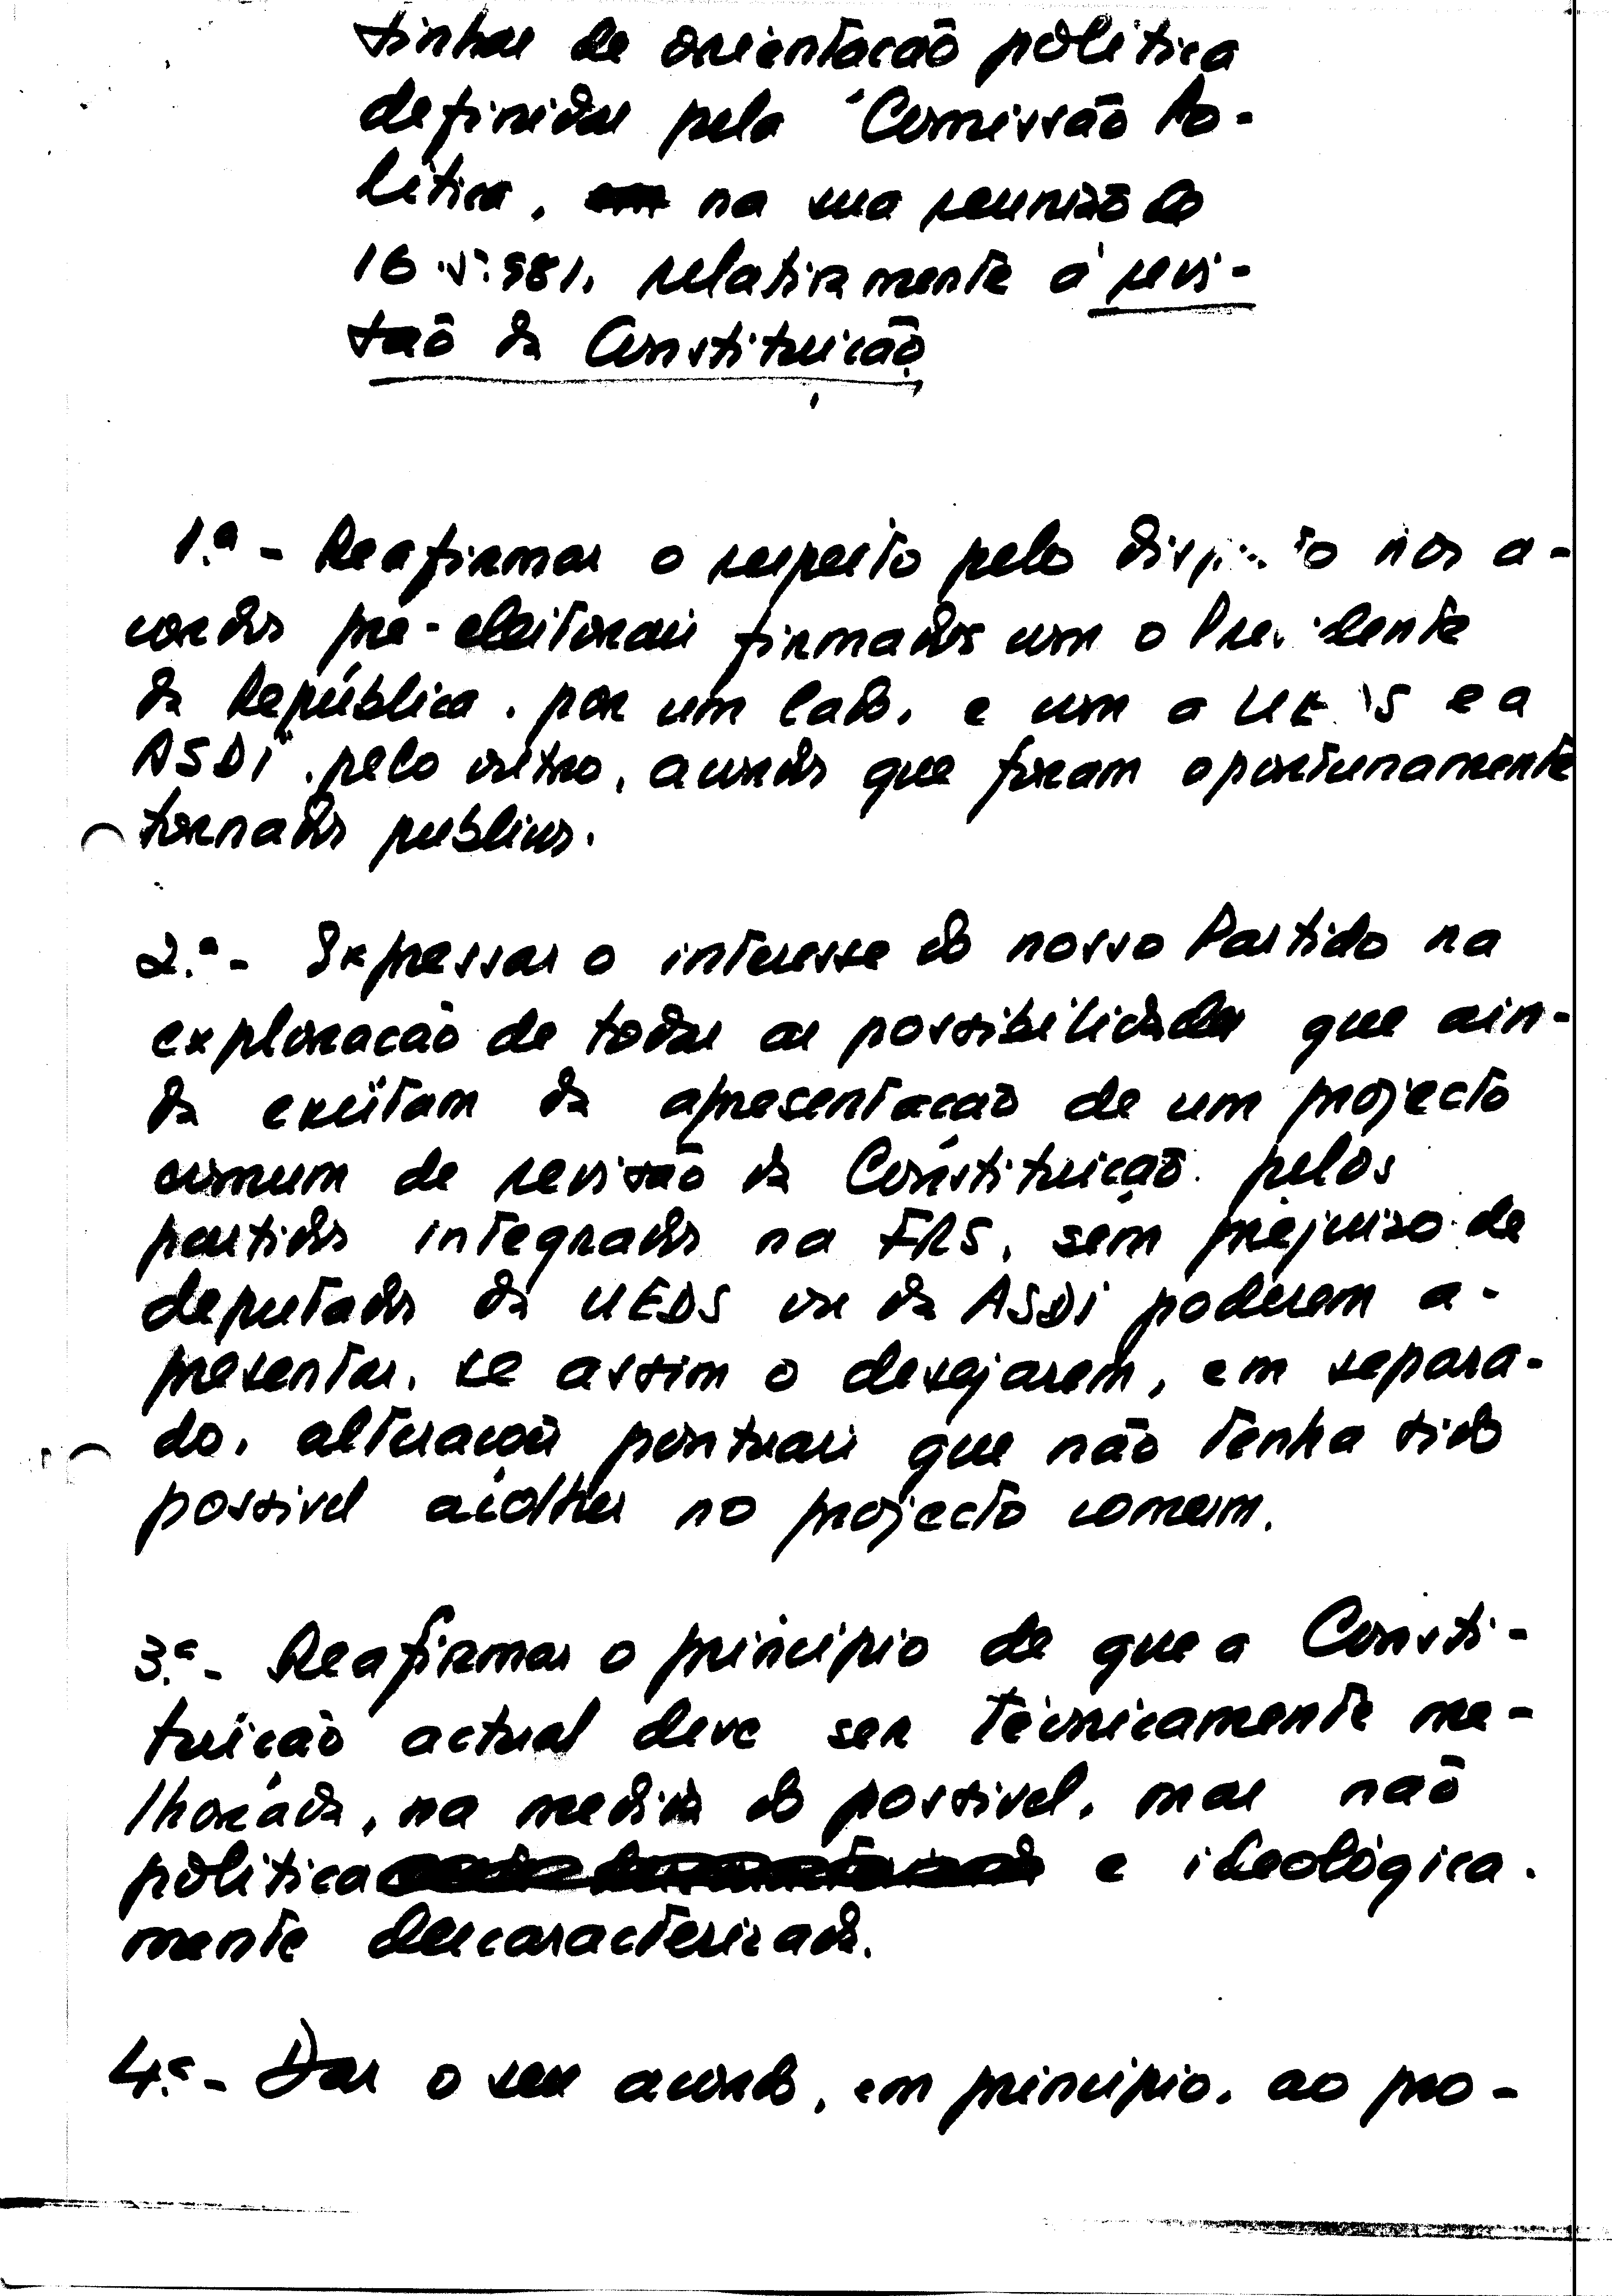 Linhas de orientação política
definidas pela Comissão Po-
lítica, na sua reunião de
16.V.981, relativamente à revi-
são da Constituição
1.ª - Reafirmar o respeito pelo disposto nos a-
cordos pré-eleitorais firmados com o Presidente
da República, por um lado, e com a UEDS e a
ASDI, pelo outro, acordos que foram oportunamente
tornados públicos.
2.ª - Expressar o interesse do nosso Partido na
exploração de todas as possibilidades que ain-
da existam da apresentação de um projecto
comum de revisão da Constituição pelos
partidos integrados na FRS, sem prejuízo de
deputados da UEDS ou da ASDI poderem a-
presentar, se assim o desejarem, em separa-
do, alterações pontuais que não tenha sido
possível acolher no projecto comum.
3.ª - Reafirmar o princípio de que a Consti-
tuição actual deve ser tècnicamente me-
lhorada, na medida do possível, mas não
política e ideológica-
mente descaracterizada.
4.ª - Dar o seu acordo, em princípio, ao pro-